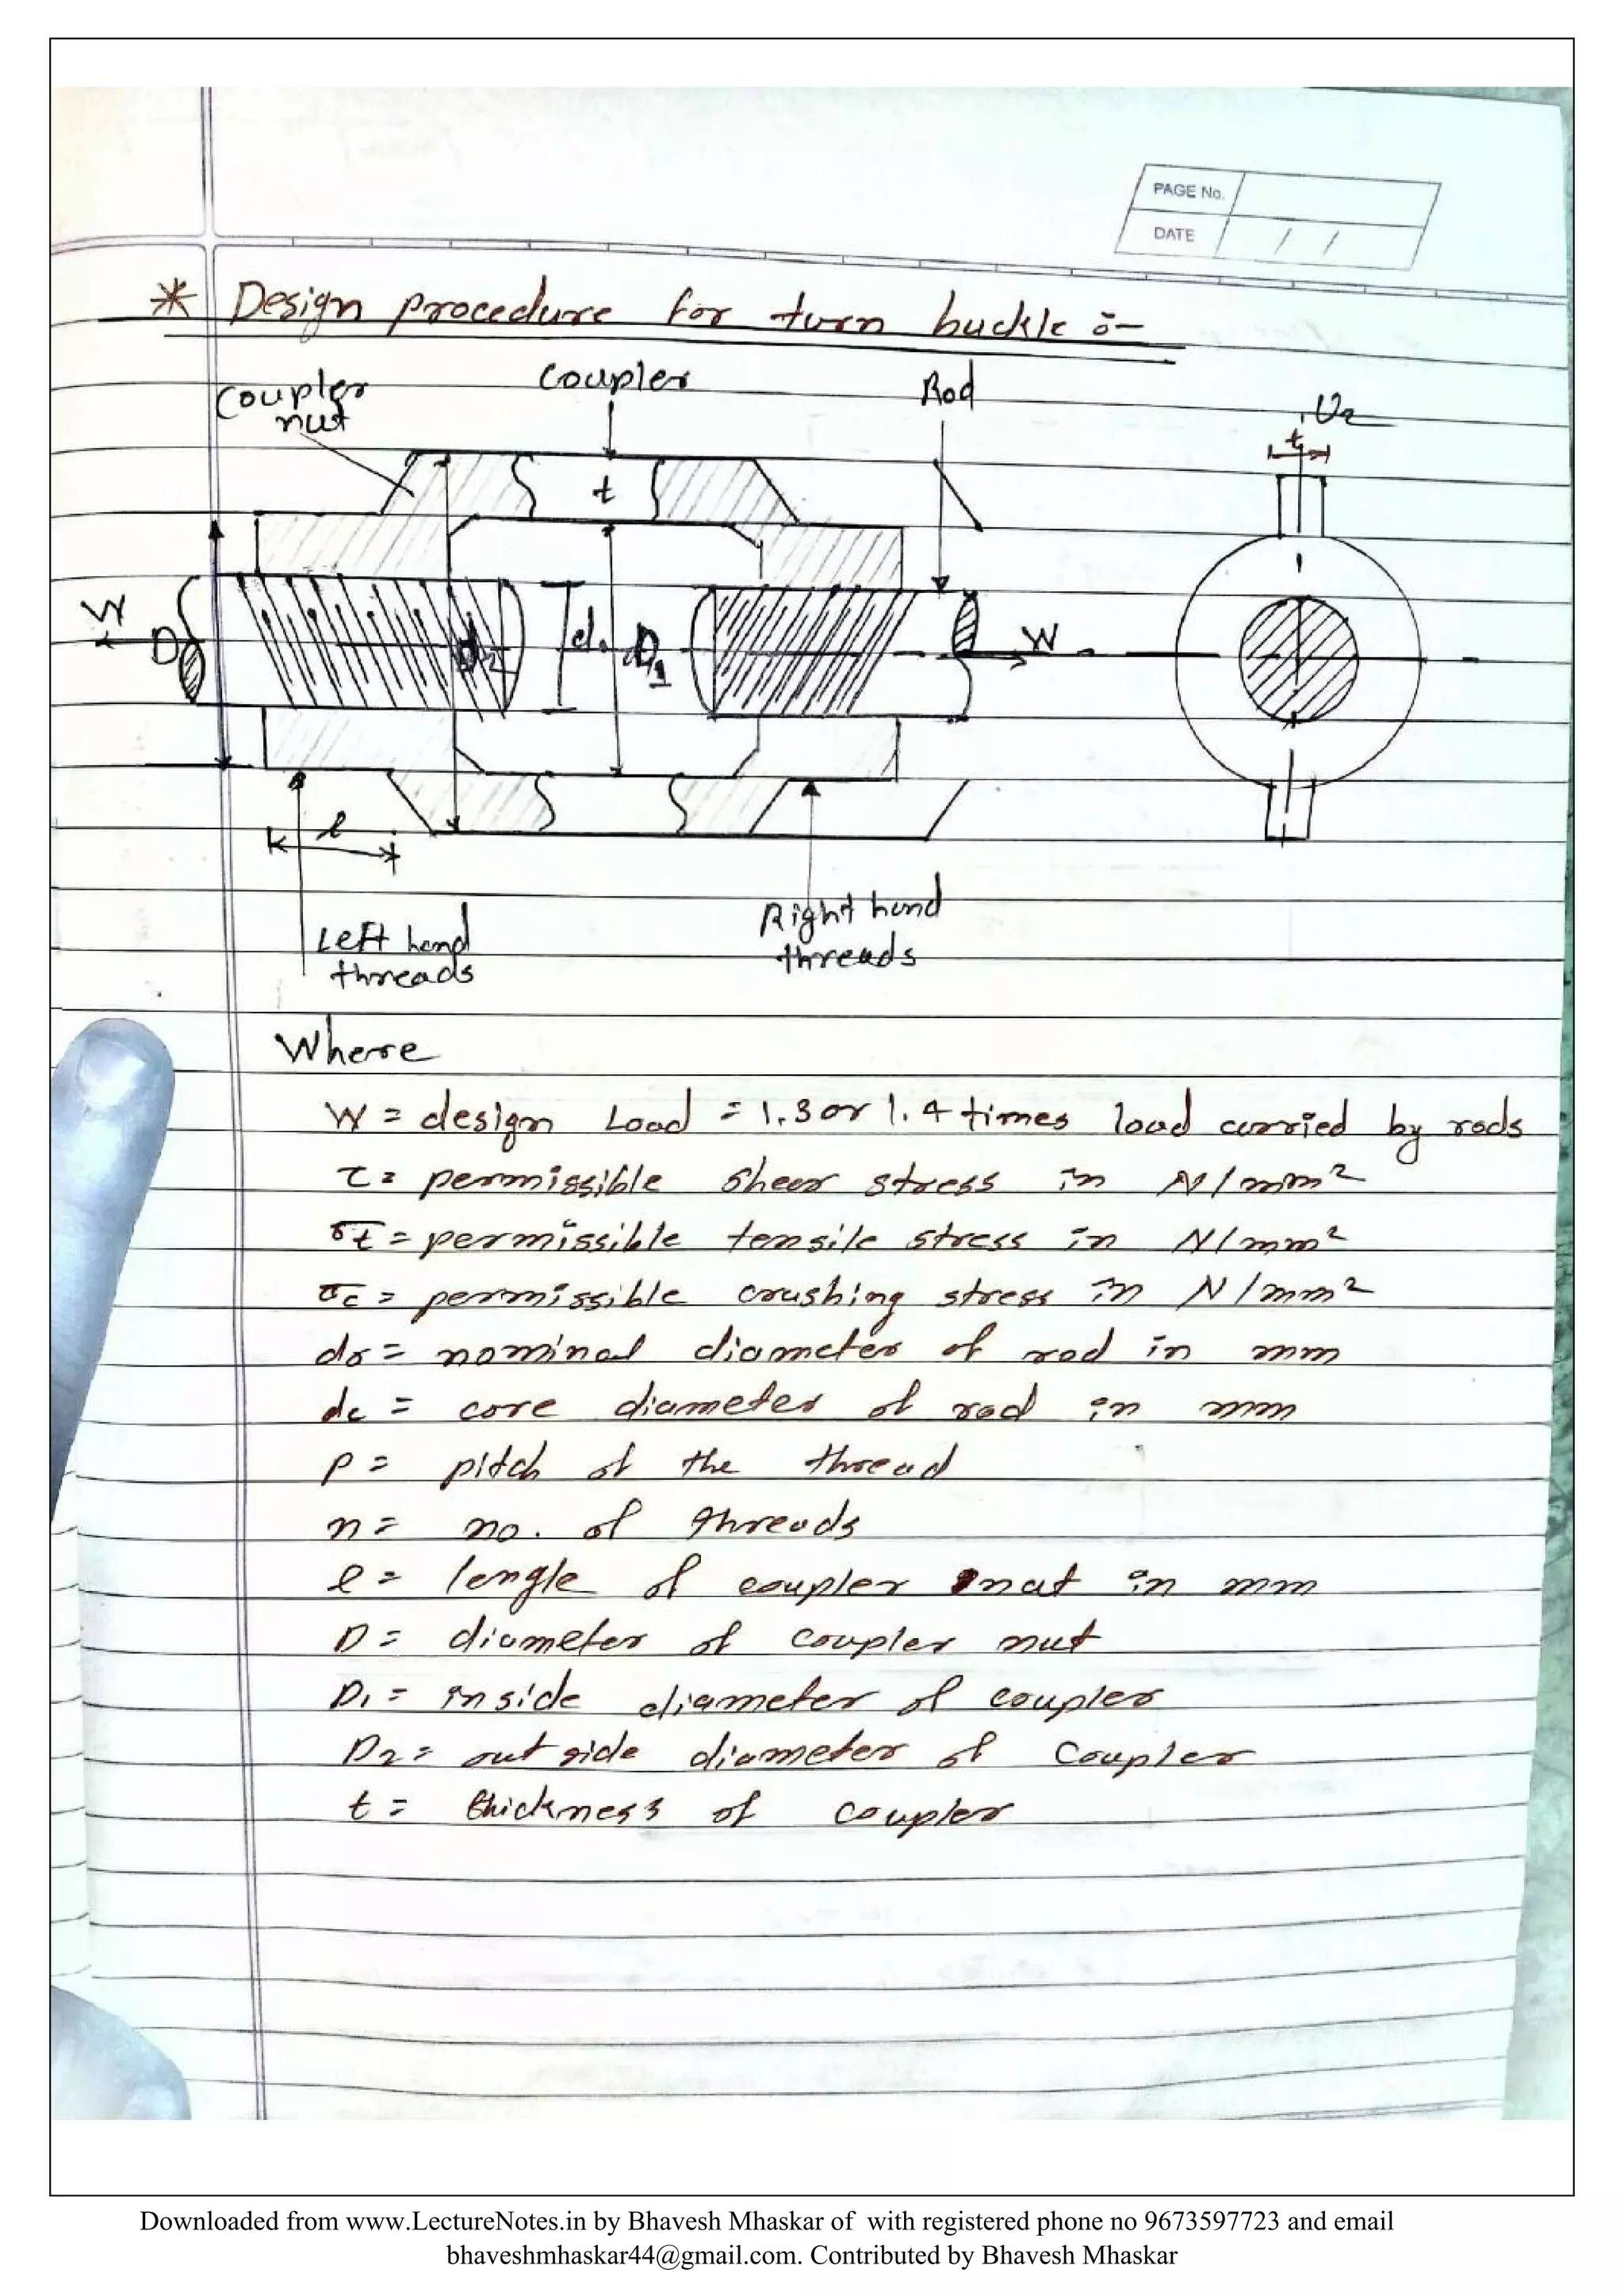 PAGE No.
DATE / /
* Design procedure for turn buckle :-
Coupler nut
Coupler
Rod
t
t
W
D
d2
do
D1
W
l
Left hand
threads
Right hand
threads
Where
W = design Load = 1.3 or 1.4 times load carried by rods
τ = permissible shear stress in N/mm²
σt = permissible tensile stress in N/mm²
σc = permissible crushing stress in N/mm²
do = nominal diameter of rod in mm
dc = core diameter of rod in mm
P = pitch of the thread
n = no. of threads
l = lengle of coupler nut in mm
D = diameter of coupler nut
D1 = inside diameter of coupler
D2 = out side diameter of Coupler
t = thickness of coupler
Downloaded from www.LectureNotes.in by Bhavesh Mhaskar of with registered phone no 9673597723 and email
bhaveshmhaskar44@gmail.com. Contributed by Bhavesh Mhaskar